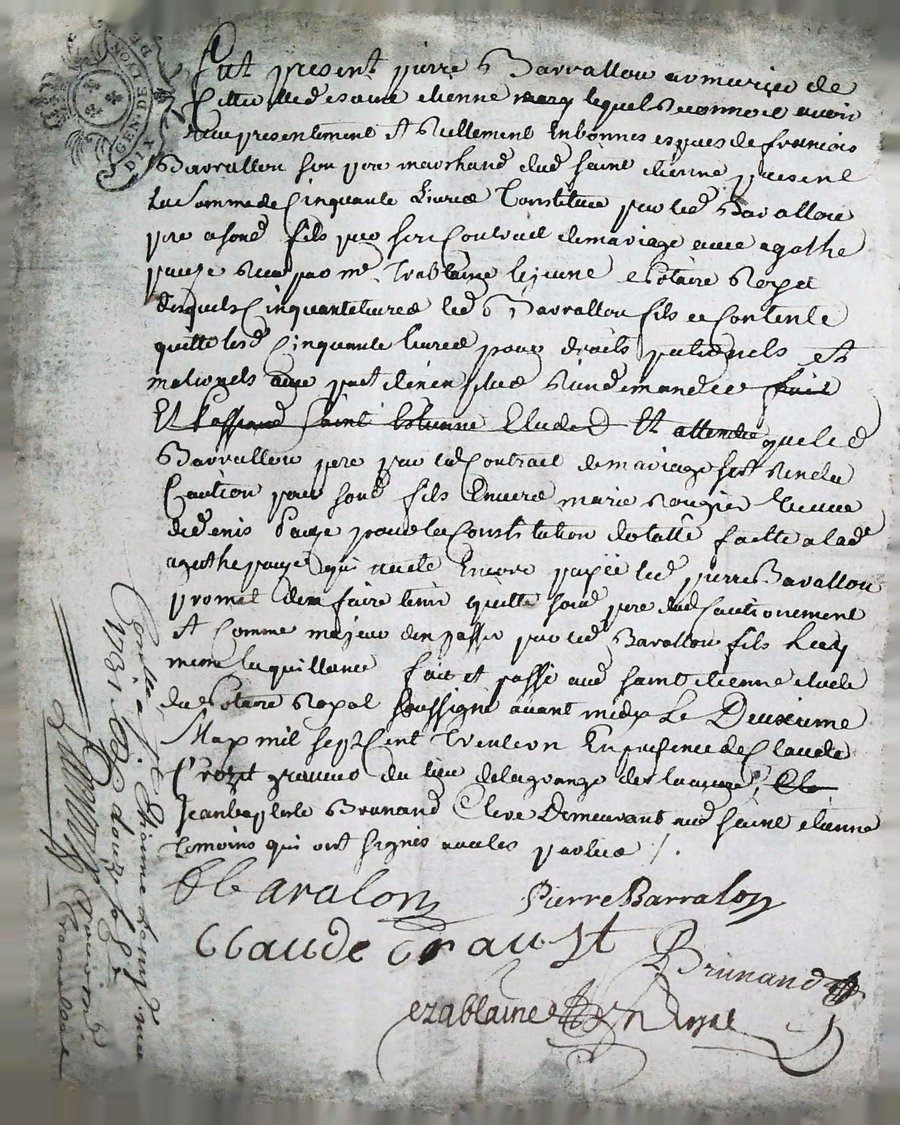 GEN. DE LYON
DIX
Fut present pierre Barrallon armurier de
cette ville de saint etienne lequel reconnoit avoir
receu presentement et reellement en bonnes espces de francois
Barrallon son pere marchand dud saint etienne present
La somme de Cinquante Livres Constituee par led Barallon
pere a sond fils par son Contract de mariage avec agathe
pauze receu par me. trablaine le jeune notaire Royal
desquels Cinquante livres led Barrallon fils ce Contente
quitte lesd Cinquante livres pour droits paternels et
maternels avec pact de n'en plus rien demander fait
Et Passé aud Saint Estienne Etude Et attendu que led
Barrallon pere par led Contract de mariage sest rendu
Caution pour sond fils Envers marie Rougier veuve
de denis Pauze pour la Constitution dotalle faitte a lad
agathe pauze qui a este Encore payée led pierre Bavallon
promet den faire tenir quitte sond pere dud Cautionement
Et Comme majeur den passer par led Barallon fils
meme la quittance fait et passé aud saint etienne etude
du Notaire Royal soussigné avant midy Le Deuxieme
May mil sept Cent trente un En presence de Claude
Crozit graveur du lieu de la grange de
Jean baptiste Brunand Clerc Demeurant aud saint etienne
temoins qui ont signés avec les parties /.
Baralon
Pierre Barralon
CLaude Craust
Brunand
ezablaine Nre Royal
Controllé a St. Etienne le
1731 Rd douze sols